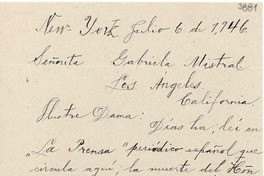 3881
New York Julio 6 de 1946.
Señorita Gabriela Mistral
Los Angeles.
California.
Ilustre Dama:
Días ha, leí en
"La Prensa" periódico español que
circula aquí; la muerte del Hon